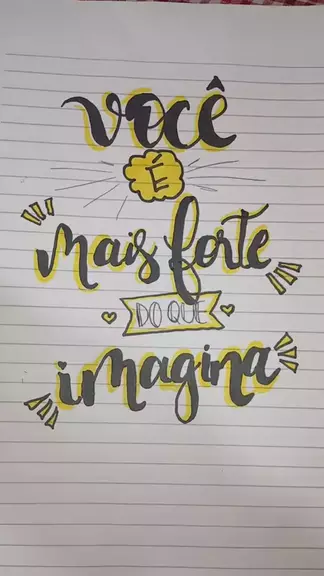 Você
É
mais forte
DO QUE
imagina